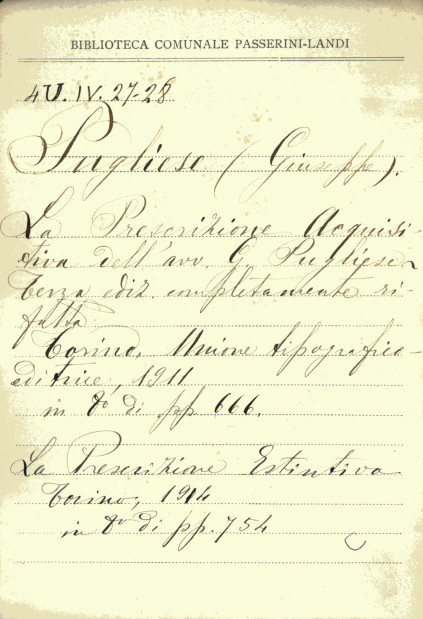 BIBLIOTECA COMUNALE PASSERINI-LANDI
4U. IV. 27-28
Pugliese (Giuseppe).
La Prescrizione Acquisi-
tiva dell'avv. G. Pugliese
Terza ediz. completamente ri-
fatta
Torino, Unione tipografico-
editrice, 1911
in 8º di pp 666.
La Prescrizione Estintiva
Torino, 1914
in 8º di pp. 754